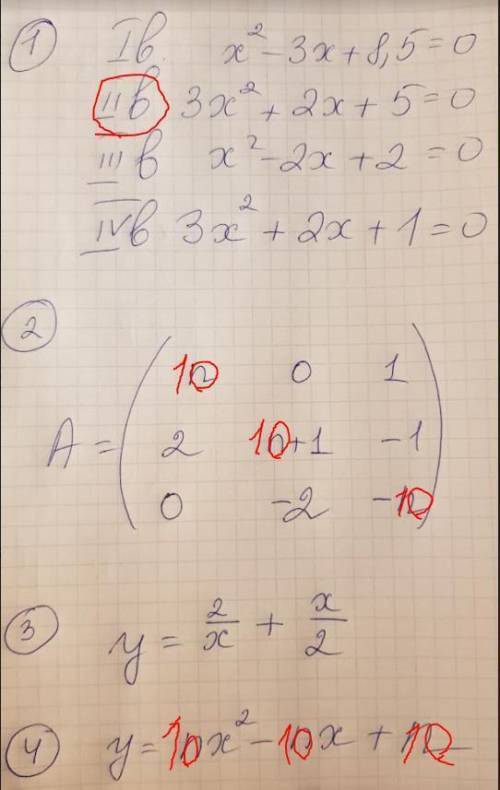 1 Iв. x² - 3x + 8,5 = 0
IIв 3x² + 2x + 5 = 0
IIIв x² - 2x + 2 = 0
IVв 3x² + 2x + 1 = 0
2
10 0 1
A = 2 10+1 -1
0 -2 -10
3 y = 2/x + x/2
4 y = 10x² - 10x + 10